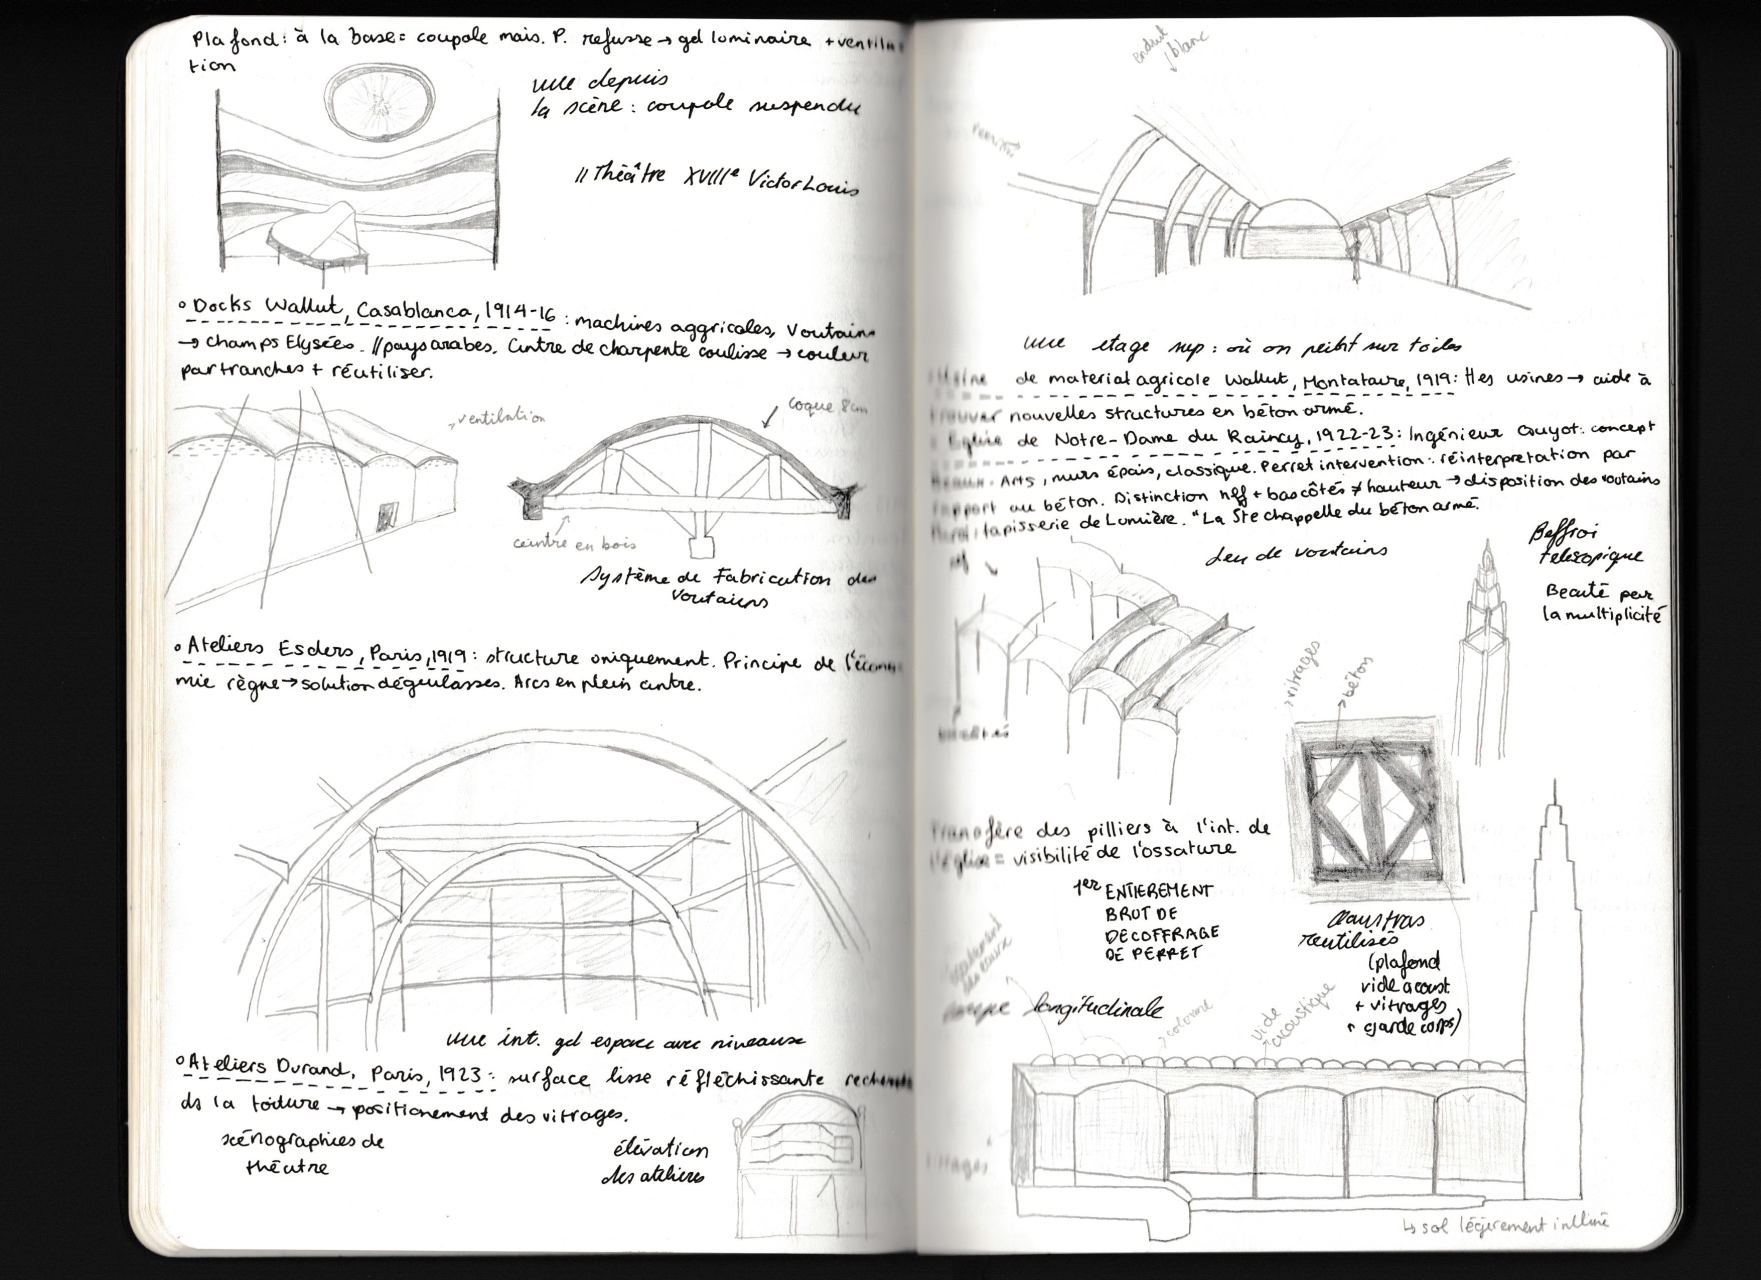 Plafond: à la base = coupole mais. P. refusse → gd luminaire + ventila
tion
vue depuis
la scène : coupole suspendu
// Théâtre XVIIIe Victor Louis
° Docks Wallut, Casablanca, 1914-16 : machines aggricoles, Voutains
→ champs Elysées. // pays arabes. Cintre de charpente coulisse → couler
par tranches + réutiliser.
ventilation
coque 8cm
ceintre en bois
Système de Fabrication des
Voutains
° Ateliers Esders, Paris, 1919 : structure uniquement. Principe de l'écono
mie règne → solution dégeulasses. Arcs en plein cintre.
vue int. gd espace avec niveaux
° Ateliers Durand, Paris, 1923 : surface lisse réfléchissante recherche
ds la toiture → positionement des vitrages.
scénographies de
théatre
élévation
des ateliers
enduit
blanc
vue etage sup : où on peint sur toiles
Usine de material agricole Wallut, Montataire, 1919 : Hes usines → aide à
trouver nouvelles structures en béton armé.
° Eglise de Notre-Dame du Raincy, 1922-23 : Ingénieur Guyot : concept
Beaux-Arts, murs épais, classique. Perret intervention : réinterpretation par
rapport au béton. Distinction nef + bas côtés ≠ hauteur → disposition des voutains
Paroi : tapisserie de Lumière. "La Ste chappelle du béton armé.
nef
Jeu de voutains
Beffroi
telescopique
Beauté par
la multiplicité
bas côtés
vitrages
béton
Transfère des pilliers à l'int. de
l'église = visibilité de l'ossature
1er ENTIEREMENT
BRUT DE
DECOFFRAGE
DE PERRET
Claustras
reutilisés
(plafond
vide acoust.
+ vitrages
+ garde corps)
coupe longitudinale
colonne
vide
acoustique
vitrages
↳ sol légèrement inlliné